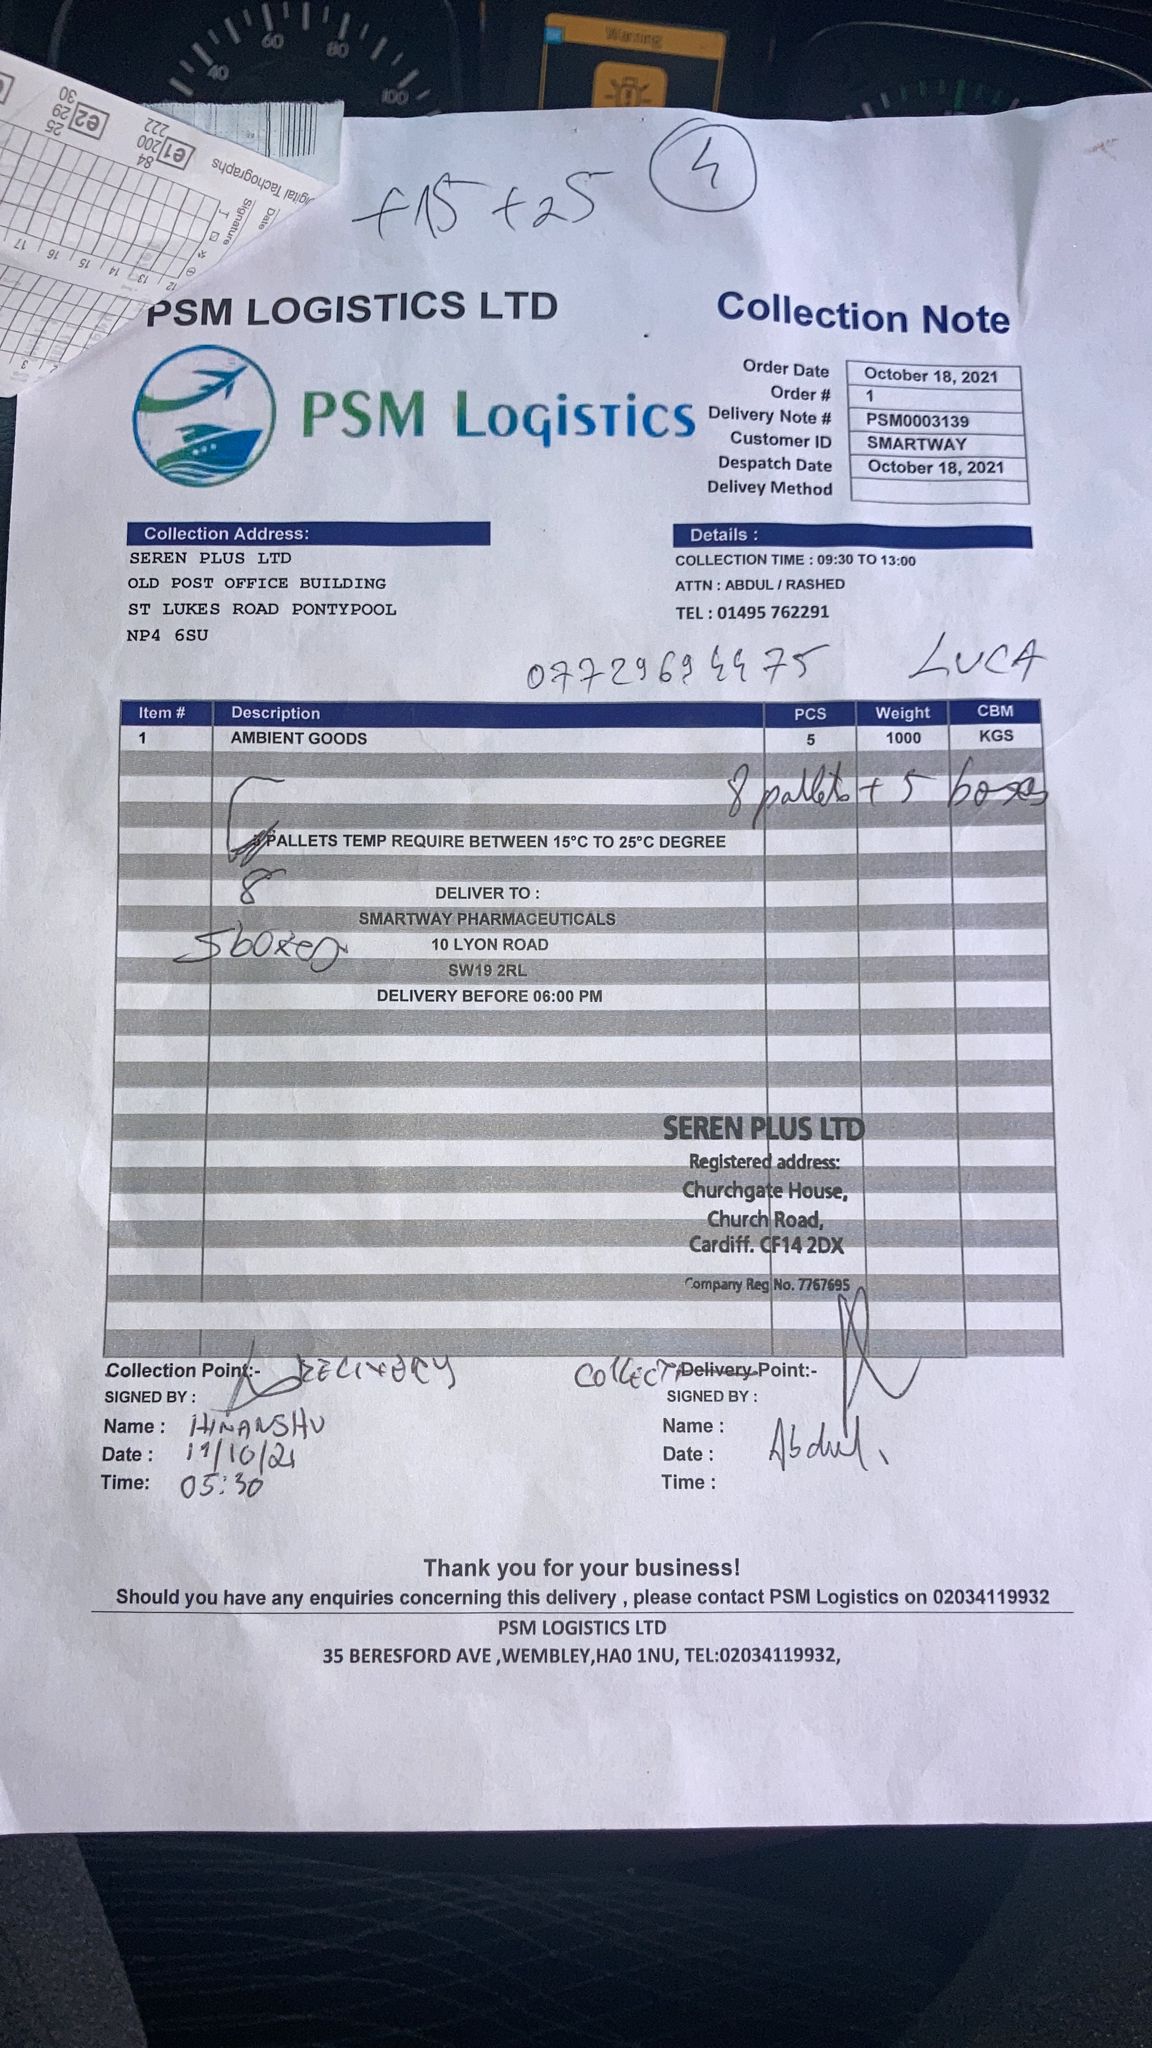 60 80
40 100
Warning
30
25 29 e2
222
84 200 e1
igital Tachographs
Signature
Date
17 16 15 14 13 12
+15 +25 4
PSM LOGISTICS LTD
Collection Note
PSM Logistics
Order Date October 18, 2021
Order # 1
Delivery Note # PSM0003139
Customer ID SMARTWAY
Despatch Date October 18, 2021
Delivey Method
Collection Address:
SEREN PLUS LTD
OLD POST OFFICE BUILDING
ST LUKES ROAD PONTYPOOL
NP4 6SU
Details :
COLLECTION TIME : 09:30 TO 13:00
ATTN : ABDUL / RASHED
TEL : 01495 762291
LUCA
Item # Description PCS Weight CBM
1 AMBIENT GOODS 5 1000 KGS
8 pallets + 5 boxes
PALLETS TEMP REQUIRE BETWEEN 15°C TO 25°C DEGREE
8
DELIVER TO :
SMARTWAY PHARMACEUTICALS
5 boxes
10 LYON ROAD
SW19 2RL
DELIVERY BEFORE 06:00 PM
SEREN PLUS LTD
Registered address:
Churchgate House,
Church Road,
Cardiff. CF14 2DX
Company Reg No. 7767695
Collection Point:- DELIVERY
SIGNED BY :
Name : HIMANSHU
Date : 19/10/21
Time: 05:30
COLLECT Delivery Point:-
SIGNED BY :
Name :
Date : Abdul.
Time :
Thank you for your business!
Should you have any enquiries concerning this delivery , please contact PSM Logistics on 02034119932
PSM LOGISTICS LTD
35 BERESFORD AVE ,WEMBLEY,HA0 1NU, TEL:02034119932,